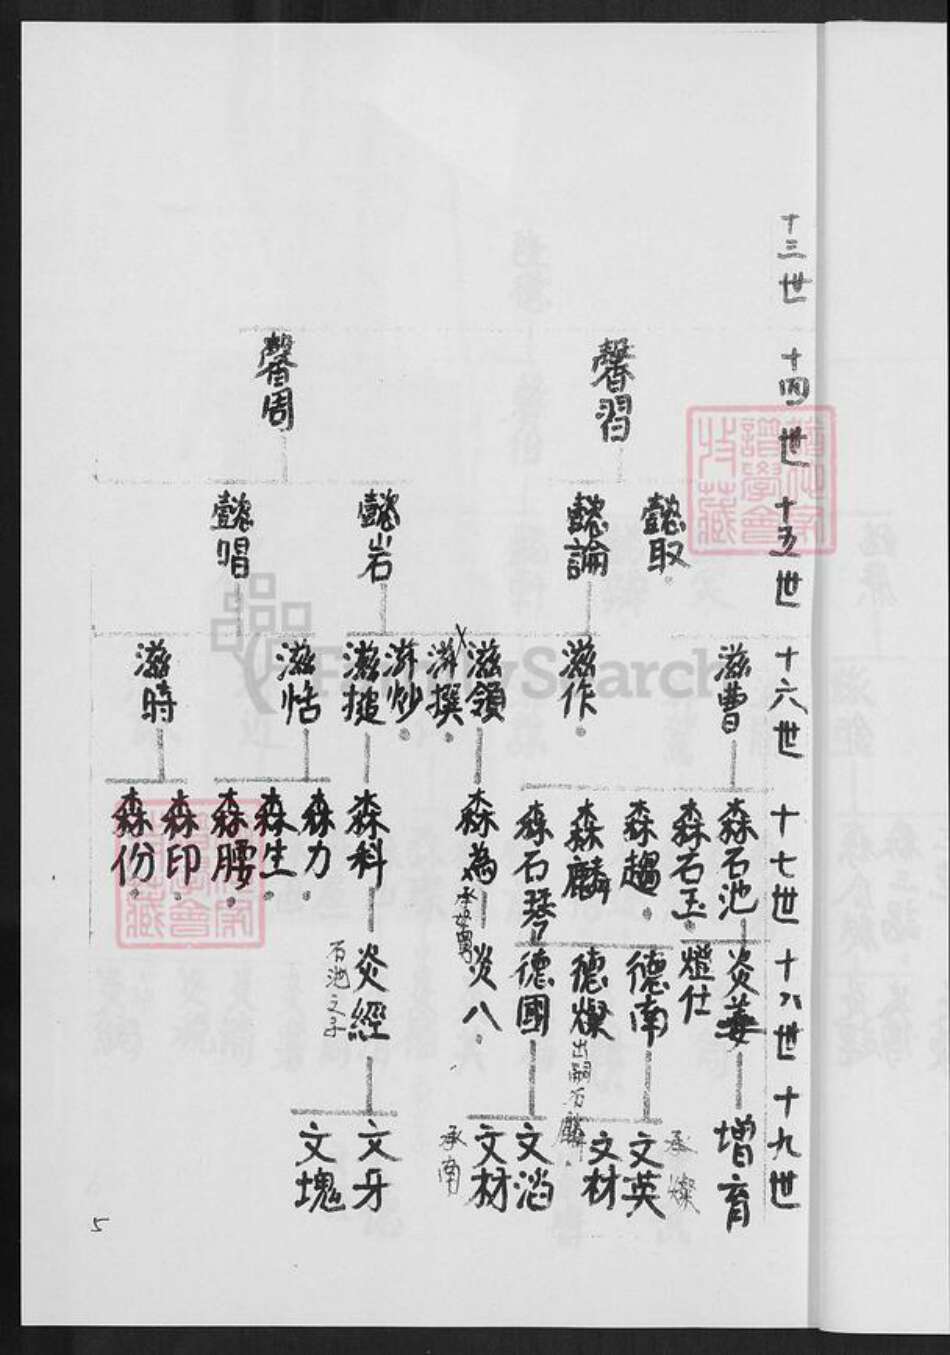 十三世 十四世 十五世 十六世 十七世 十八世 十九世
馨習
馨周
懿取
懿論
懿岩
懿唱
滋曹
滋作
滋領
滋撰
滋炒
滋搥
滋恬
滋時
森石池
森石玉
森趨
森麟
森石琴
森為
森科
森力
森生
森腰
森印
森份
炎華
燈仕
德南
德燦 出嗣石麟
德國
炎八
炎經
石池之子
增育
文英
承燦
文材
文滔
文材
承南
文牙
文塊
5
FamilySearch